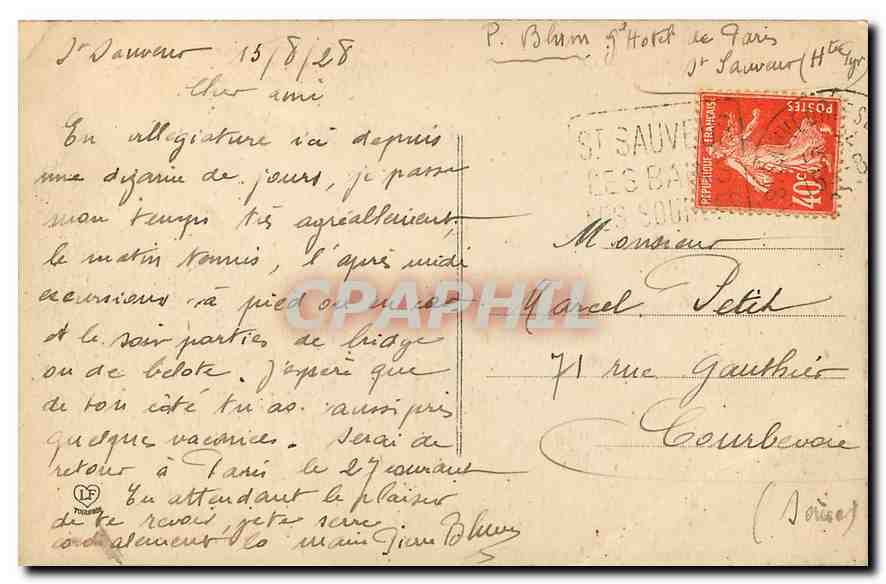 St Sauveur 15/8/28
Cher ami
En villégiature ici depuis
une dizaine de jours, je passe
mon temps très agréablement,
le matin tennis, l'après midi
excursions à pied ou en car
et le soir parties de bridge
ou de belote. J'espère que
de ton côté tu as aussi pris
quelques vacances. Serai de
retour à Paris le 27 courant
En attendant le plaisir
de te revoir, je te serre
cordialement la main Pierre Blum
LF
TOULOUSE
P. Blum Gd Hotel de Paris
St Sauveur (Htes Pyr)
ST SAUVE
LES BA
SOUR
REPUBLIQUE FRANÇAISE
POSTES
40c
Monsieur
Marcel Petit
71 rue Gauthier
Courbevoie
(Seine)
CPAPHIL